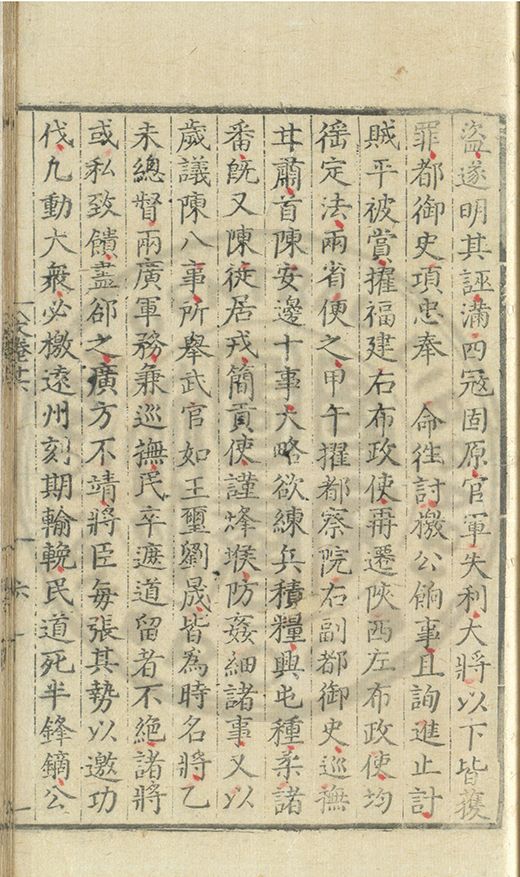 盜遂明其誣滿四冦固原官軍失利大將以下皆獲
罪都御史項忠奉　命徃討檄公餉事且詢進止計
賊平被賞擢福建右布政使再遷陝西左布政使均
徭定法兩省便之甲午擢都察院右副都御史巡撫
甘肅首陳安邊十事大略欲練兵積糧興屯種柔諸
番旣又陳徙居戎簡貢使謹烽堠防姦細諸事又以
歲議陳八事所舉武官如王璽劉晟皆爲時名將乙
未總督兩廣軍務兼巡撫民卒遮道留者不絶諸將
或私致饋盡郤之廣方不靖將臣每張其勢以邀功
伐凢動大衆必檄遠州刻期輸輓民道死半鋒鏑公
六